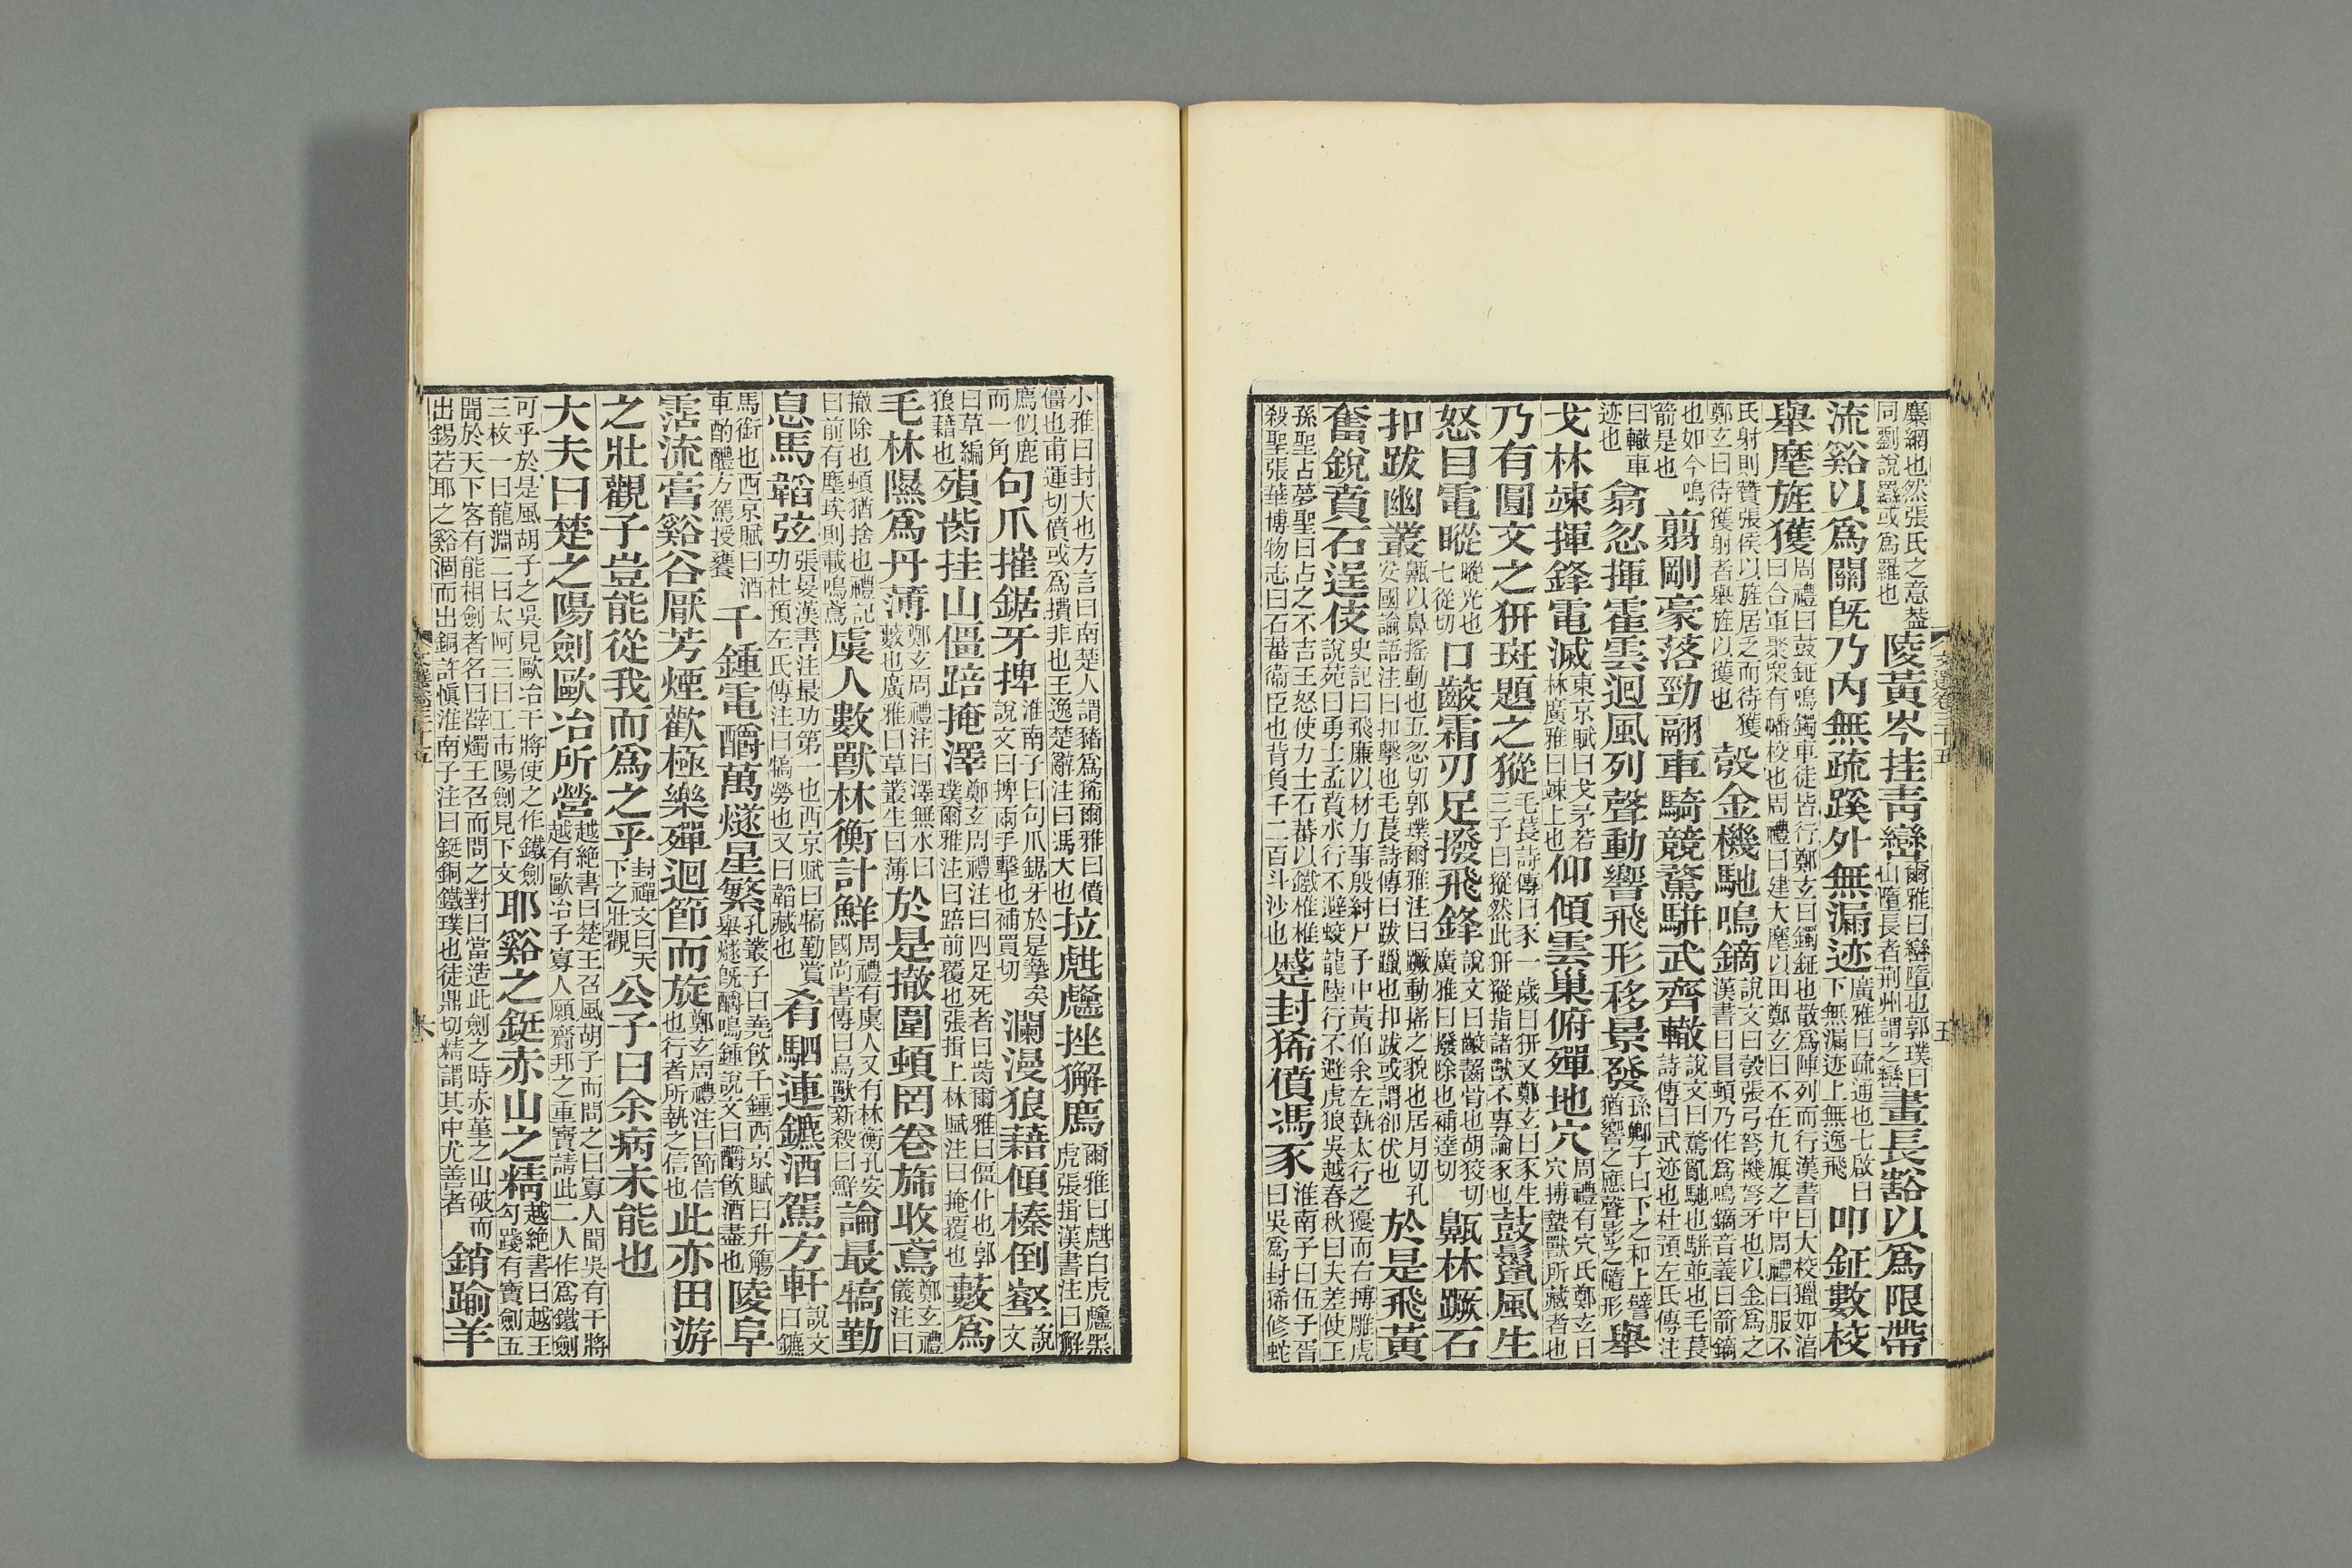 麋網也然張氏之意蓋同劉說羉或為羅也陵黃岑挂青巒爾雅曰巒墮也郭璞曰山墮長者荊州謂之巒畫長豁以爲限帶
流谿以爲關旣乃內無疏蹊外無漏迹廣雅曰疏通也七啟曰下無漏迹上無逸飛叩鉦數校
舉麾旌獲周禮曰鼓鉦鳴鐲車徒皆行鄭玄曰鐲鉦也散爲陣列而行漢書曰大校獵如淳曰合軍聚衆有幡校也周禮曰建大麾以田鄭玄曰不在九旗之中周禮曰服不
氏射則贊張侯以旌居乏而待獲鄭玄曰待獲射者舉旌以獲也彀金機馳鳴鏑說文曰彀張弓弩機弩牙也以金爲之漢書曰冒頓乃作爲鳴鏑音義曰箭鏑
也如今鳴箭是也翦剛豪落勁翮車騎競騖駢武齊轍說文曰騖亂馳也駢並也毛萇詩傳曰武迹也杜預左氏傳注
曰轍車迹也翕忽揮霍雲迴風列聲動響飛形移景發孫卿子曰下之和上譬猶響之應聲影之隨形舉
戈林竦揮鋒電滅東京賦曰戈矛若林廣雅曰竦上也仰傾雲巢俯殫地穴周禮有穴氏鄭玄曰穴摶蟄獸所藏者也
乃有圓文之豜斑題之豵毛萇詩傳曰豕一歲曰豜又鄭玄曰豕生三子曰豵然此豜豵指諸獸不專論豕也鼓鬣風生
怒目電瞛瞛光也七從切口齩霜刃足撥飛鋒說文曰齩齧骨也胡狡切廣雅曰撥除也補達切齀林蹶石
扣跋幽叢齀以鼻搖動也五忽切郭璞爾雅注曰蹶動搖之貌也居月切孔安國論語注曰扣擊也毛萇詩傳曰跋躐也扣跋或謂卻伏也於是飛黃
奮銳賁石逞伎史記曰飛廉以材力事殷紂尸子中黃伯余左執太行之獶而右搏雕虎說苑曰勇士孟賁水行不避蛟龍陸行不避虎狼吳越春秋曰夫差使王
孫聖占夢聖曰占之不吉王怒使力士石蕃以鐵椎椎殺聖張華博物志曰石蕃衞臣也背負千二百斗沙也蹙封狶僨馮豕淮南子曰伍子胥曰吳爲封狶修蛇
文選卷三十五 五
小雅曰封大也方言曰南楚人謂豬爲狶爾雅曰僨僵也甫運切僨或爲攢非也王逸楚辭注曰馮大也拉甝虪挫獬廌爾雅曰甝白虎虪黑虎張揖漢書注曰獬
廌似鹿而一角句爪摧鋸牙捭淮南子曰句爪鋸牙於是摯矣說文曰捭兩手擊也補買切瀾漫狼藉傾榛倒壑說文
曰草編狼藉也殞胔挂山僵踣掩澤鄭玄周禮注曰四足死者曰胔爾雅曰僵仆也郭璞爾雅注曰踣前覆也張揖上林賦注曰掩覆也藪爲
毛林隰爲丹薄鄭玄周禮注曰澤無水曰藪也廣雅曰草叢生曰薄於是撤圍頓罔卷斾收鳶鄭玄禮儀注曰
撤除也頓猶捨也禮記曰前有塵埃則載鳴鳶虞人數獸林衡計鮮周禮有虞人又有林衡孔安國尚書傳曰鳥獸新殺曰鮮論最犒勤
息馬韜弦張晏漢書注最功第一也西京賦曰犒勤賞功杜預左氏傳注曰犒勞也又曰韜藏也肴駟連鑣酒駕方軒說文曰鑣
馬銜也西京賦曰酒車酌醴方駕授饔千鍾電釂萬燧星繁孔叢子曰堯飲千鍾西京賦曰升觴舉燧旣釂鳴鍾說文曰釂飲酒盡也陵阜
霑流膏谿谷厭芳煙歡極樂殫迴節而旋鄭玄周禮注曰節信也行者所執之信也此亦田游
之壯觀子豈能從我而爲之乎封禪文曰天下之壯觀公子曰余病未能也
大夫曰楚之陽劍歐冶所營越絶書曰楚王召風胡子而問之曰寡人聞吳有干將越有歐冶子寡人願齎邦之重寶請此二人作爲鐵劍
可乎於是風胡子之吳見歐冶干將使之作鐵劍三枚一曰龍淵二曰太阿三曰工市陽劍見下文耶谿之鋌赤山之精越絶書曰越王勾踐有寶劍五
聞於天下客有能相劍者名曰薛燭王召而問之對曰當造此劍之時赤堇之山破而出錫若耶之谿涸而出銅許愼淮南子注曰鋌銅鐵璞也徒鼎切精謂其中尤善者銷踰羊
文選卷三十五 六